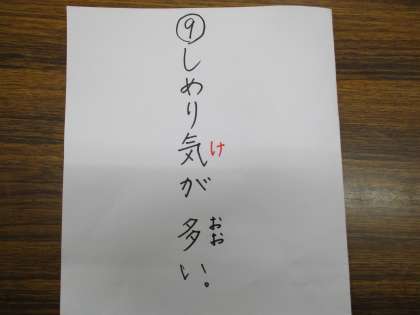 ⑨しめり気が多い。
け
おお